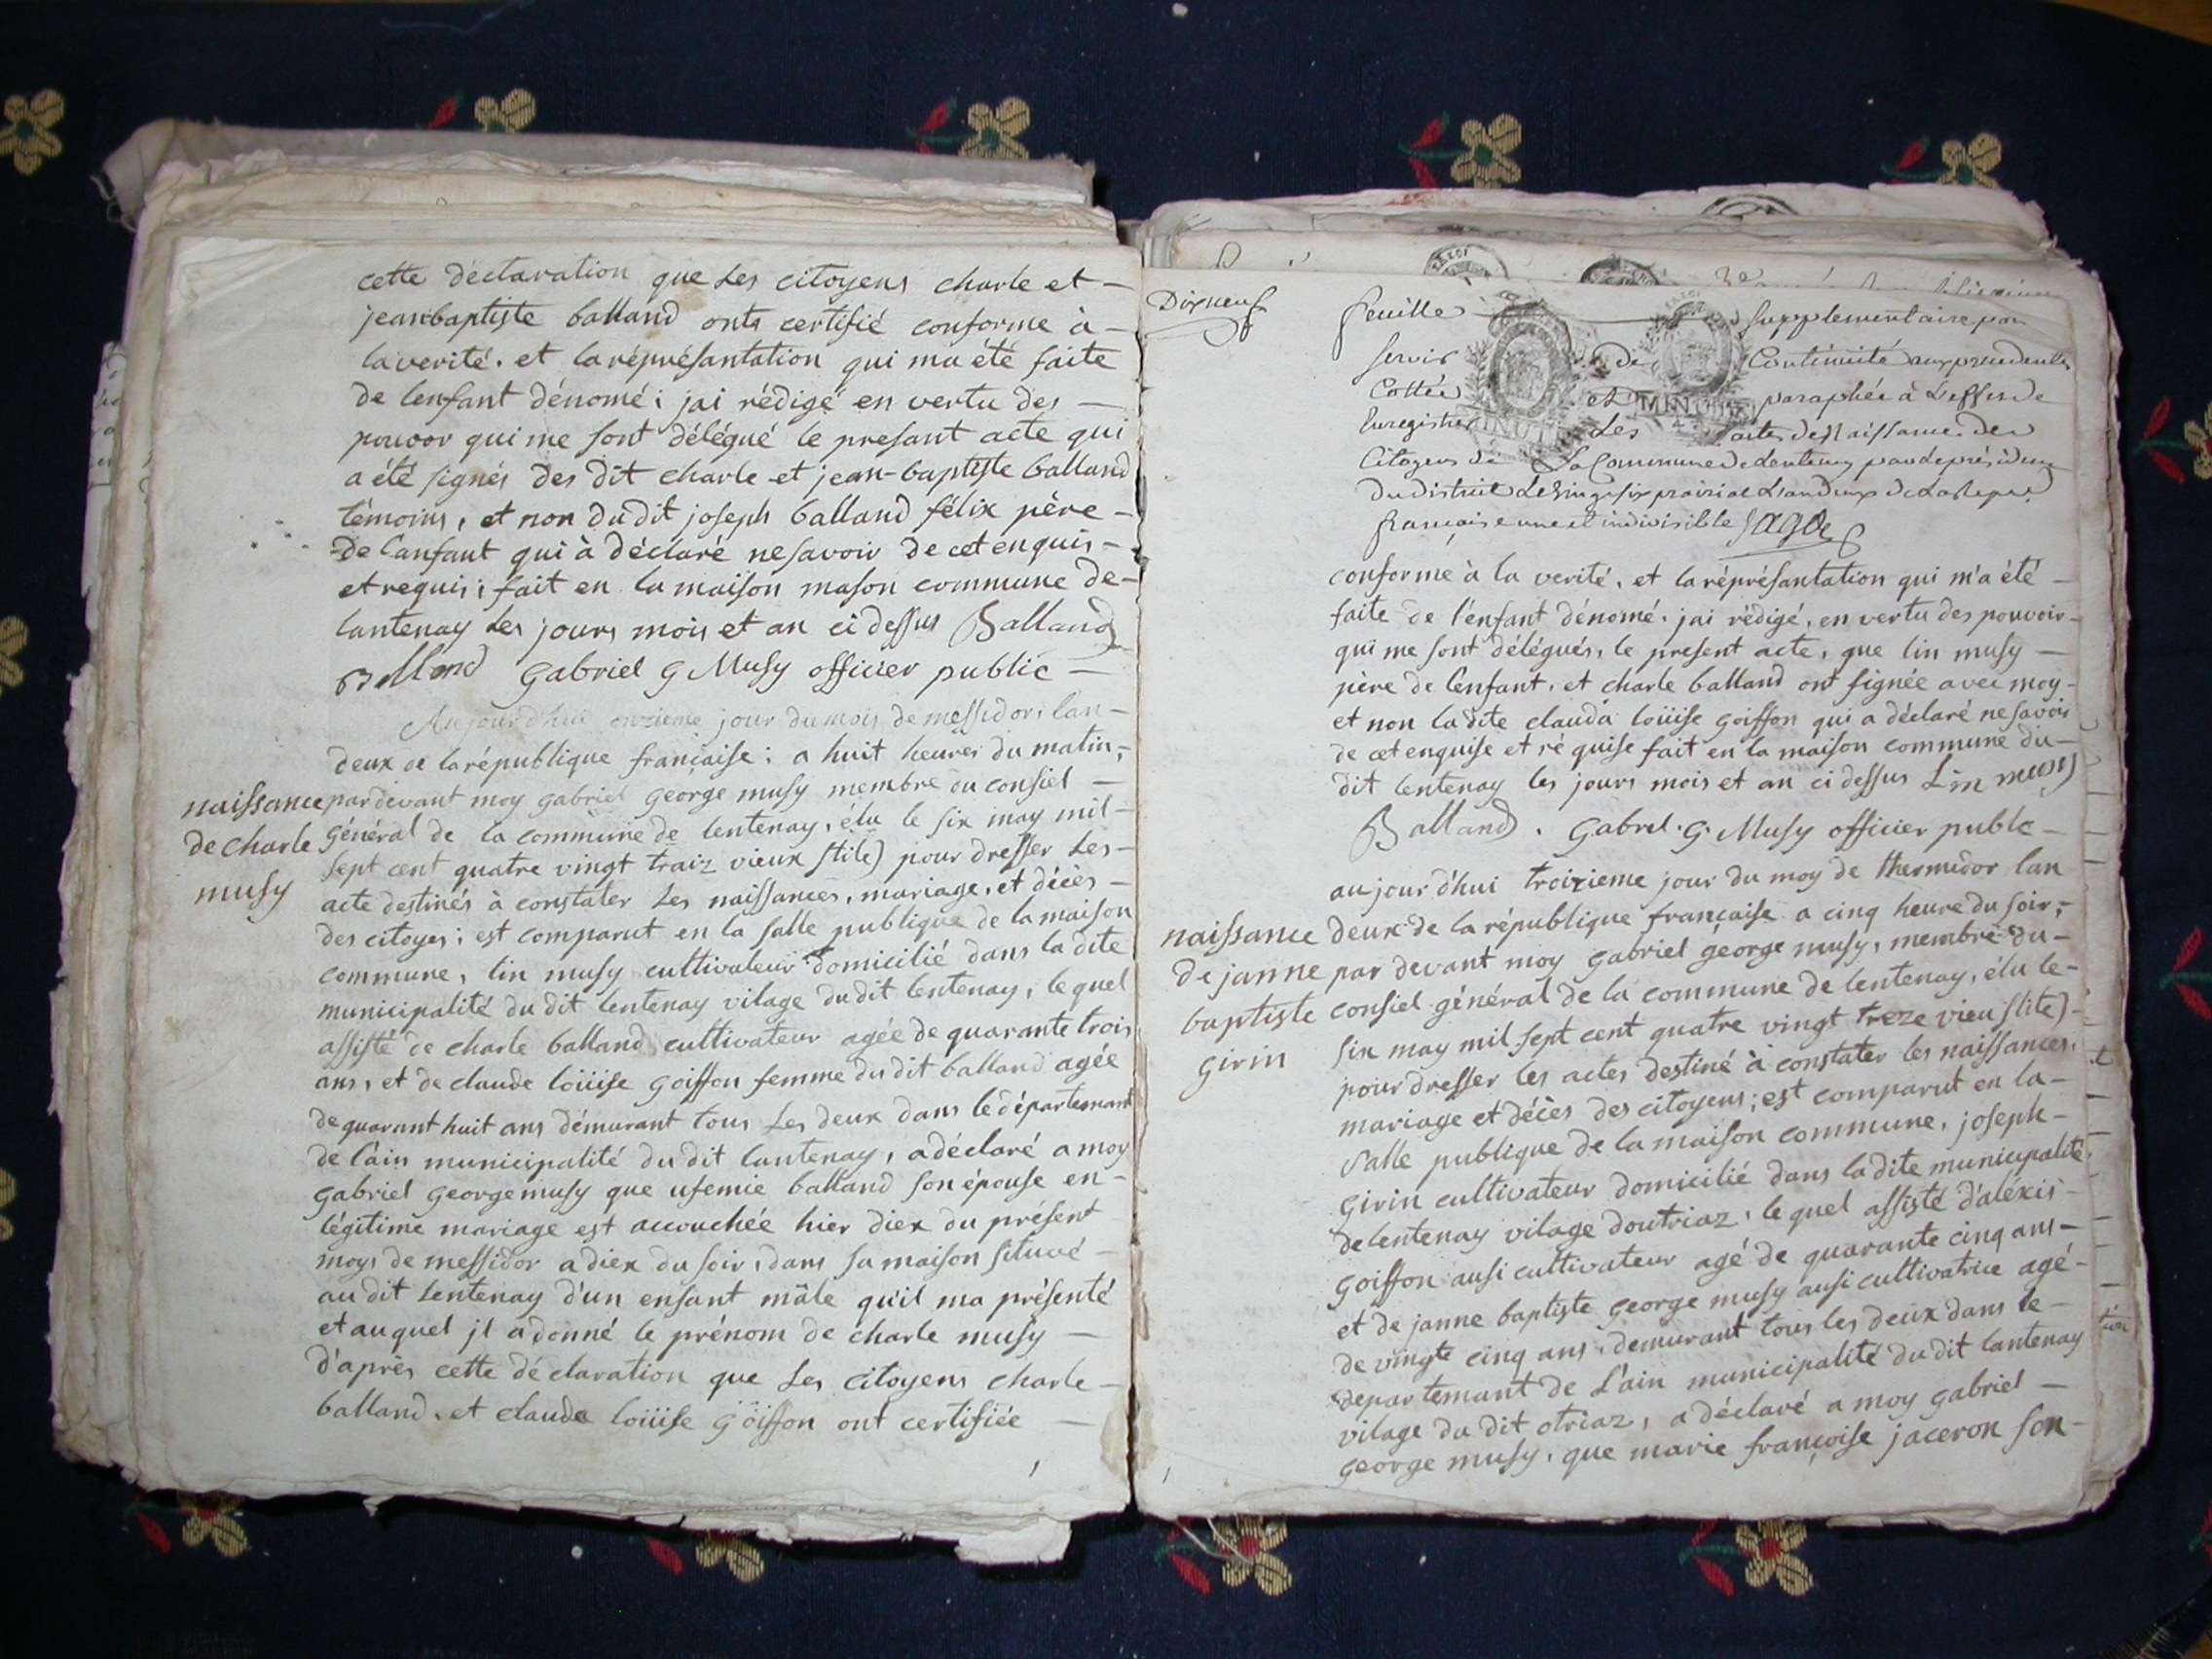 cette déclaration que les citoyens charle et –
jeanbaptiste balland onts certifié conforme à –
la verité. et la réprésantation qui ma été faite
de lenfant dénomé ; jai rédigé en vertu des –
pouvoor qui me sont délégué le presant acte qui
a été signés des dit charle et jean-baptiste balland
témoins, et non du dit joseph balland félix père –
de lanfant qui à déclaré ne savoir de cet enquis –
et requis ; fait en la maison mason commune de –
lantenay les jours mois et an ci dessus Balland
Balland gabriel g Musy officier public –
Aujourd'hui onzieme jour du mois de messidor, lan –
deux de la république française ; a huit heures du matin, –
naissance
de charle
musy
pardevant moy gabriel george musy membre du consiel –
général de la commune de lentenay, élu le six may mil –
sept cent quatre vingt traiz vieux stile) pour dresser les –
acte destinés à constater les naissances, mariage, et décès –
des citoyes ; est comparut en la salle publique de la maison
commune, lin musy cultivateur domicilié dans la dite
municipalité du dit lentenay vilage du dit lentenay, le quel
assisté de charle balland cultivateur agée de quarante trois
ans, et de claude loüise goiffon femme du dit balland agée
de quarant huit ans démurant tous les deux dans le départemant
de l'ain municipalité du dit lantenay, a déclaré a moy
gabriel george musy que ufemie balland son épouse en –
légitime mariage est accouchée hier diex du présent
moys de messidor a diex du soir, dans sa maison situué –
au dit lentenay d'un enfant mâle qu'il ma présenté
et auquel jl a donné le prénom de charle musy –
d'après cette déclaration que les citoyens charle –
balland. et claude loüise goïffon ont certifiée –
Dixneuf
feuille supplementaire pour
servir de Continuité aux precedentes
Cottée et paraphée à L'effet de
Enregistrer Les actes de Naissance des
Citoyens de La Commune de Lentenay par le président
du district Le vingt six prairial L'an deux de La Repu
française une et indivisible
MINUT
MINUT
conforme à la verité, et la réprésantation qui m'a été –
faite de l'enfant dénomé. jai rédigé, en vertu des pouvoir –
qui me sont délégués, le present acte, que lin musy –
père de lenfant. et charle balland ont signée avec moy –
et non la dite clauda loüise goiffon qui a déclaré ne savoir
de cet enquise et ré quise fait en la maison commune du –
dit lentenay les jours mois et an ci dessus Lin musy
Balland. gabrel. g. Musy officier public –
aujourd'hui troizieme jour du moy de thermidor lan
naissance
de janne
baptiste
girin
deux de la république française a cinq heure du soir, –
par devant moy gabriel george musy, membre du –
consiel général de la commune de lentenay, élu le –
six may mil sept cent quatre vingt treze vieu stile) –
pour dresser les actes destiné à constater les naissances.
mariage et décès des citoyens ; est comparut en la –
salle publique de la maison commune, joseph –
girin cultivateur domicilié dans la dite municipalité.
de lentenay vilage doutriaz, le quel assisté d'aléxis –
goiffon ausi cultivateur agé de quarante cinq ans –
et de janne baptiste george musy ausi cultivatrice agé –
de vingte cinq ans. demurant tous les deux dans le –
departemant de L'ain municipalité du dit lantenay
vilage du dit otriaz, a déclaré a moy gabriel –
george musy, que marie françoise jaceron son –